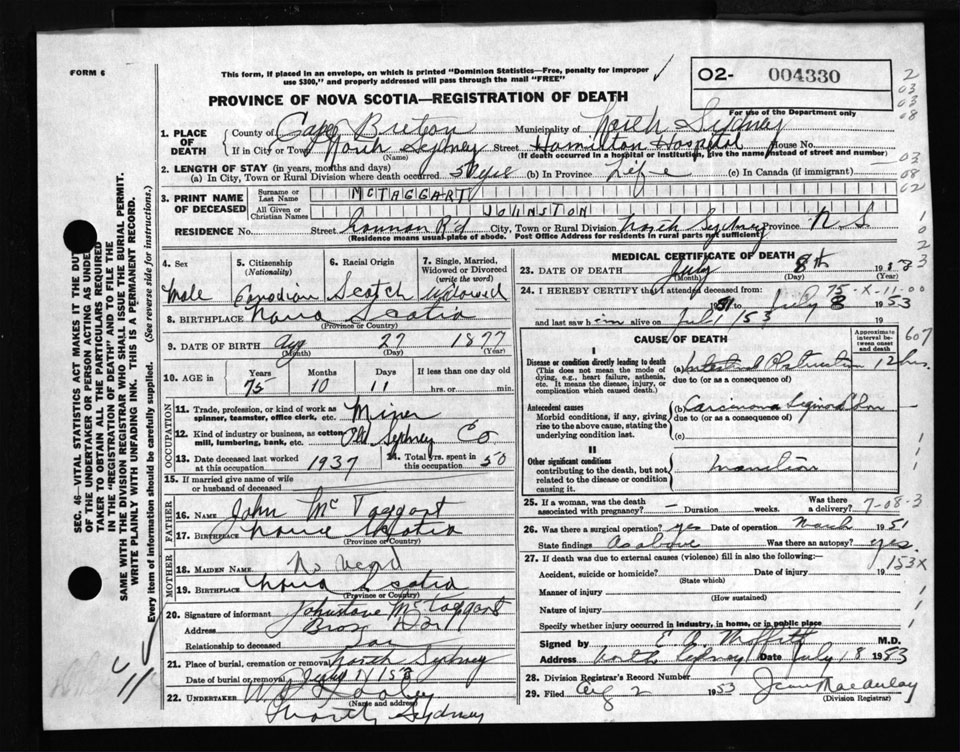 FORM 6
This form, if placed in an envelope, on which is printed "Dominion Statistics—Free, penalty for improper
use $300," and properly addressed will pass through the mail "FREE"
02- 004330
For use of the Department only
PROVINCE OF NOVA SCOTIA—REGISTRATION OF DEATH
1. PLACE OF DEATH
County of Cape Breton Municipality of North Sydney
If in City or Town North Sydney Street Hamilton Hospital House No.
(Name) (If death occurred in a hospital or institution, give the name instead of street and number)
2. LENGTH OF STAY (in years, months and days)
(a) In City, Town or Rural Division where death occurred (b) In Province Life (c) In Canada (if immigrant)
3. PRINT NAME OF DECEASED
Surname or Last Name McTAGGART
All Given or Christian Names JOHNSTON
RESIDENCE No. Street Rd City, Town or Rural Division North Sydney Province N.S.
(Residence means usual place of abode. Post Office Address for residents in rural parts not sufficient)
4. Sex
Male
5. Citizenship
(Nationality)
Canadian
6. Racial Origin
Scotch
7. Single, Married,
Widowed or Divorced
(write the word)
Widowed
8. BIRTHPLACE Nova Scotia
(Province or Country)
9. DATE OF BIRTH Aug 27 1877
(Day) (Year)
10. AGE in
Years Months Days If less than one day
75 10 11 hrs. or min.
OCCUPATION
11. Trade, profession, or kind of work as
spinner, teamster, office clerk, etc. Miner
12. Kind of industry or business, as cotton
mill, lumbering, bank, etc. Old Sydney Co
13. Date deceased last worked
at this occupation 1937
14. Total yrs. spent in
this occupation 50
15. If married give name of wife
or husband of deceased
FATHER
16. Name John McTaggart
17. Birthplace Nova Scotia
(Province or Country)
MOTHER
18. MAIDEN NAME
19. BIRTHPLACE Nova Scotia
(Province or Country)
20. Signature of informant Johnstone McTaggart
Address
Relationship to deceased Son
21. Place of burial, cremation or removal North Sydney
Date of burial or removal July 11/53
(Name and address)
22. UNDERTAKER
North Sydney
MEDICAL CERTIFICATE OF DEATH
23. DATE OF DEATH July 8th 19
(Day)
24. I HEREBY CERTIFY that I attended deceased from:
1951 to July 8 1953
and last saw him alive on July 1/53 19
75-X-11-00
CAUSE OF DEATH
Approximate
interval between
onset
and death
I
Disease or condition directly leading to death
(This does not mean the mode of
dying, e.g., heart failure, asthenia,
etc. It means the disease, injury, or
complication which caused death.)
(a) Intestinal Obstruction 12 hrs.
due to (or as a consequence of)
Antecedent causes
Morbid conditions, if any, giving
rise to the above cause, stating the
underlying condition last.
(b) Carcinoma Sigmoid
due to (or as a consequence of)
(c)
II
Other significant conditions
contributing to the death, but not
related to the disease or condition
causing it.
Inanition
25. If a woman, was the death
associated with pregnancy? — Duration weeks. Was there
a delivery?
7-08-3
26. Was there a surgical operation? yes Date of operation March 1951
State findings As above Was there an autopsy? yes.
27. If death was due to external causes (violence) fill in also the following:—
153X
Accident, suicide or homicide? Date of injury 19
(State which)
Manner of injury
(How sustained)
Nature of injury
Specify whether injury occurred in industry, in home, or in public place
Signed by Moffitt M.D.
Address North Sydney Date July 8
28. Division Registrar's Record Number
29. Filed Aug 2 1953 Jean MacAulay
(Division Registrar)
SEC. 46—VITAL STATISTICS ACT MAKES IT THE DUTY
OF THE UNDERTAKER OR PERSON ACTING AS UNDER-
TAKER TO OBTAIN ALL THE PARTICULARS REQUIRED
IN THE "REGISTRATION OF DEATH" AND TO FILE THE
SAME WITH THE DIVISION REGISTRAR WHO SHALL ISSUE THE BURIAL PERMIT.
WRITE PLAINLY WITH UNFADING INK. THIS IS A PERMANENT RECORD.
Every item of information should be carefully supplied. (See reverse side for instructions.)
2
03
03
08
03
08
02
607